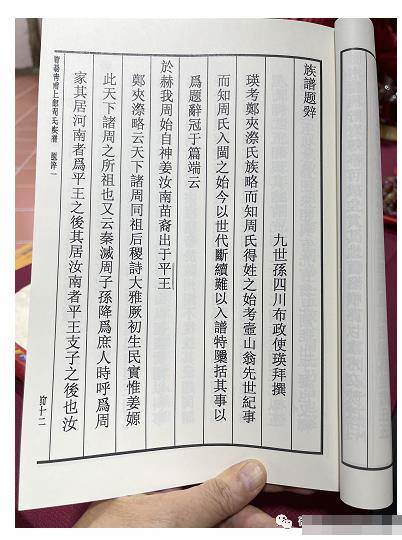 族譜題辭
九世孫四川布政使瑛拜撰
瑛考鄭夾漈氏族略而知周氏得姓之始考壺山翁先世紀事
而知周氏入閩之始今以世代斷續難以入譜特檃括其事以
爲題辭冠于篇端云
於赫我周始自神姜汝南苗裔出于平王
鄭夾漈略云天下諸周同祖后稷詩大雅厥初生民實惟姜嫄
此天下諸周之所祖也又云秦滅周子孫降爲庶人時呼爲周
家其居河南者爲平王之後其居汝南者平王支子之後也汝
莆十二